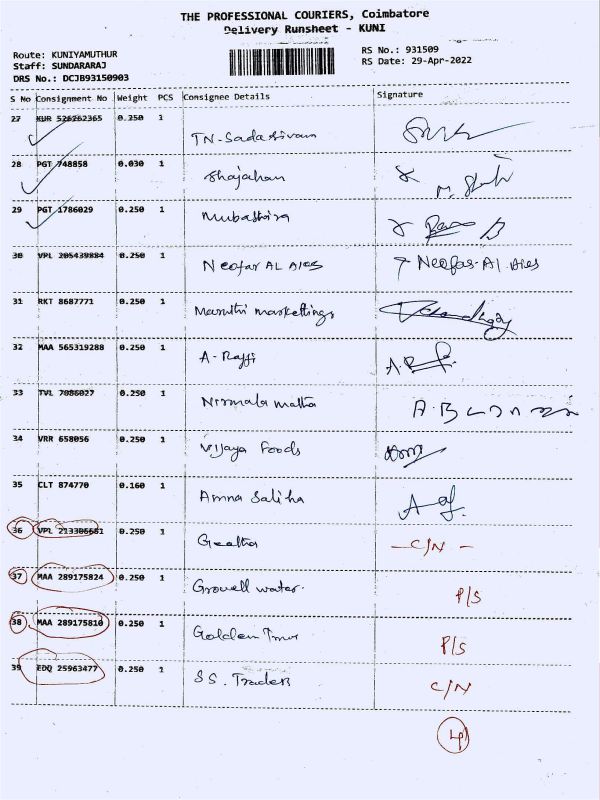 THE PROFESSIONAL COURIERS, Coimbatore
Delivery Runsheet - KUNI
Route: KUNIYAMUTHUR
Staff: SUNDARARAJ
DRS No.: DCJB93150903
RS No.: 931509
RS Date: 29-Apr-2022
S No Consignment No Weight PCS Consignee Details Signature
27 KUR 526262365 0.250 1 TN-Sadasivam
28 PGT 748858 0.030 1 Shajahan
29 PGT 1786029 0.250 1 Mubashira
30 VPL 205439884 0.250 1 Neofar AL Aies Neofas-Al. Aies
31 RKT 8687771 0.250 1 Maruthi markettings
32 MAA 565319288 0.250 1 A-Raffi
33 TVL 7086027 0.250 1 Nirmala matha
34 VRR 658056 0.250 1 Vijaya Foods
35 CLT 874770 0.160 1 Amna Saliha
36 VPL 213306681 0.250 1 Geetha - C/N -
37 MAA 289175824 0.250 1 Growell water. P/S
38 MAA 289175810 0.250 1 Golden P/S
39 EDQ 25963477 0.250 1 SS. Traders C/N
4